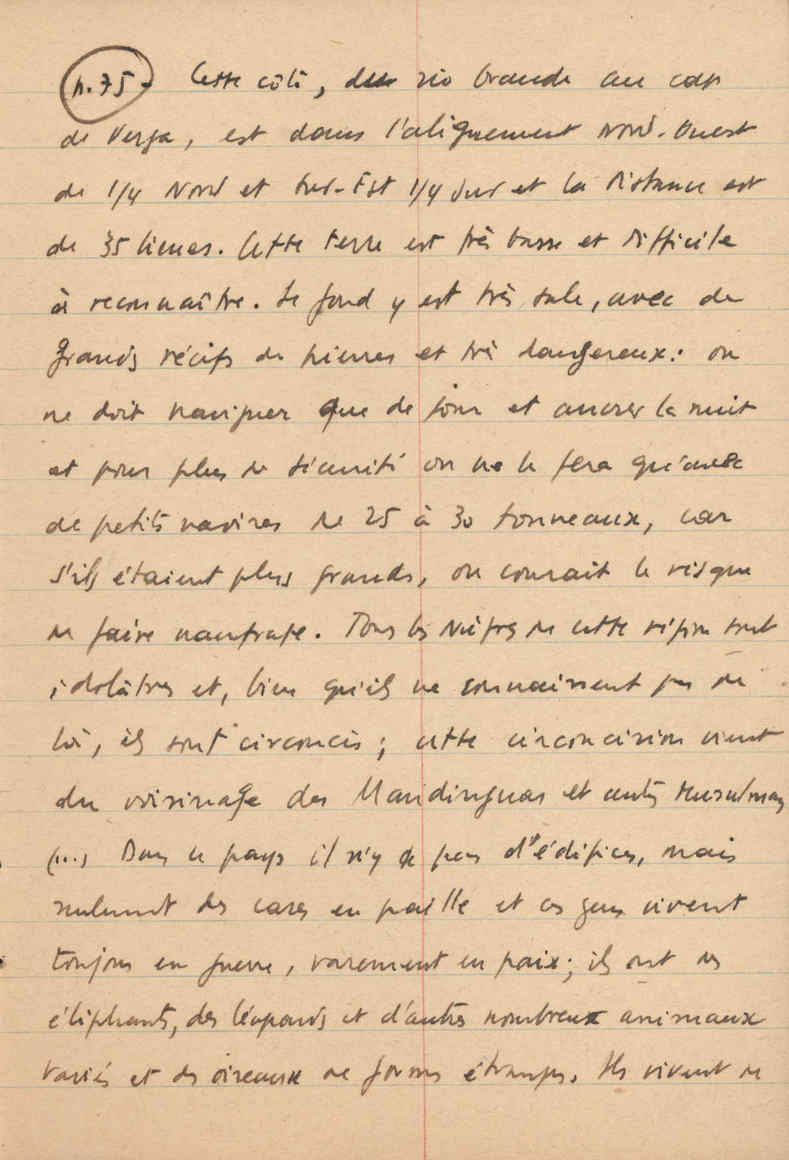 p.75 - Cette côte, du rio Grande au cap
de Verga, est dans l'alignement Nord-Ouest
de 1/4 Nord et Sud-Est 1/4 Sud et la distance est
de 35 lieues. Cette terre est très basse et difficile
à reconnaître. Le fond y est très sale, avec de
grands récifs de pierres et très dangereux : on
ne doit naviguer que de jour et ancrer la nuit
et pour plus de sécurité on ne le fera qu'avec
de petits navires de 25 à 30 tonneaux, car
s'ils étaient plus grands, on courait le risque
de faire naufrage. Tous les Nègres de cette région sont
idolâtres et, bien qu'ils ne connaissent pas de
loi, ils sont circoncis ; cette circoncision vient
du voisinage des Mandinguas et autres Musulmans
(...) Dans ce pays il n'y a pas d'édifices, mais
seulement des cases en paille et ces gens vivent
toujours en guerre, rarement en paix ; ils ont des
éléphants, des léopards et d'autres nombreux animaux
variés et des oiseaux de formes étranges. Ils vivent de